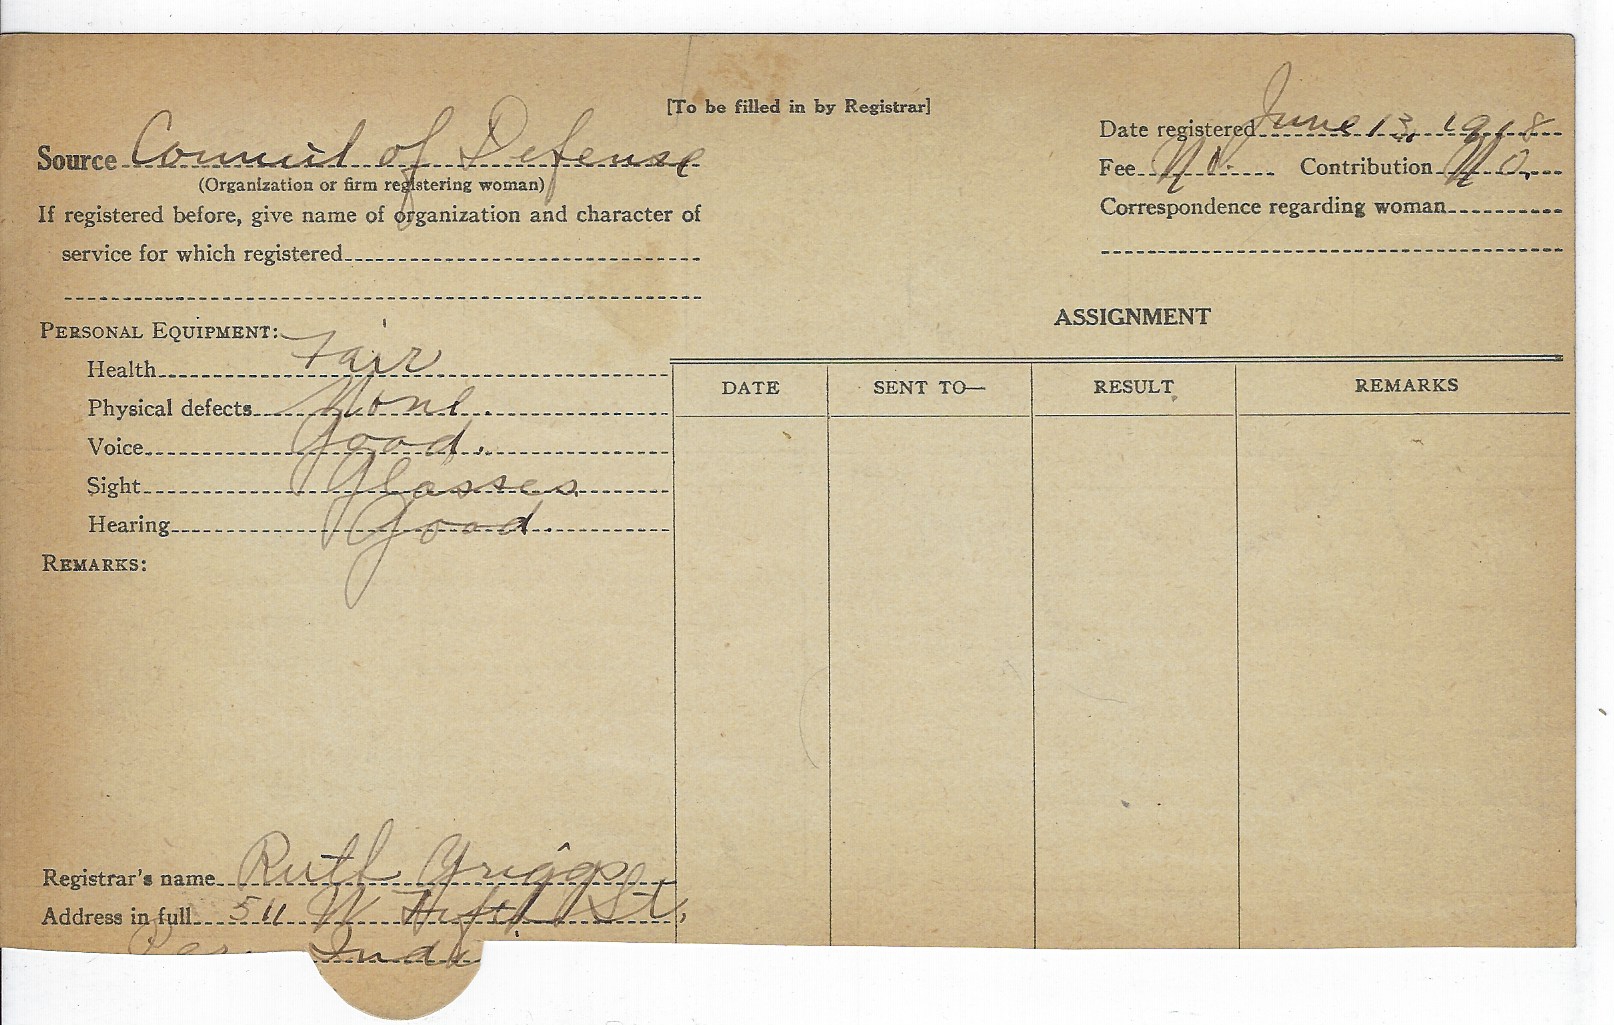 [To be filled in by Registrar]
Source Council of Defense
(Organization or firm registering woman)
If registered before, give name of organization and character of
service for which registered
Date registered June 13, 1918
Fee No. Contribution No.
Correspondence regarding woman
PERSONAL EQUIPMENT:
Health Fair
Physical defects None.
Voice Good.
Sight Glasses
Hearing Good.
REMARKS:
ASSIGNMENT
DATE SENT TO— RESULT REMARKS
Registrar's name Ruth Griggs
Address in full 511 W Fifth St,
Ind